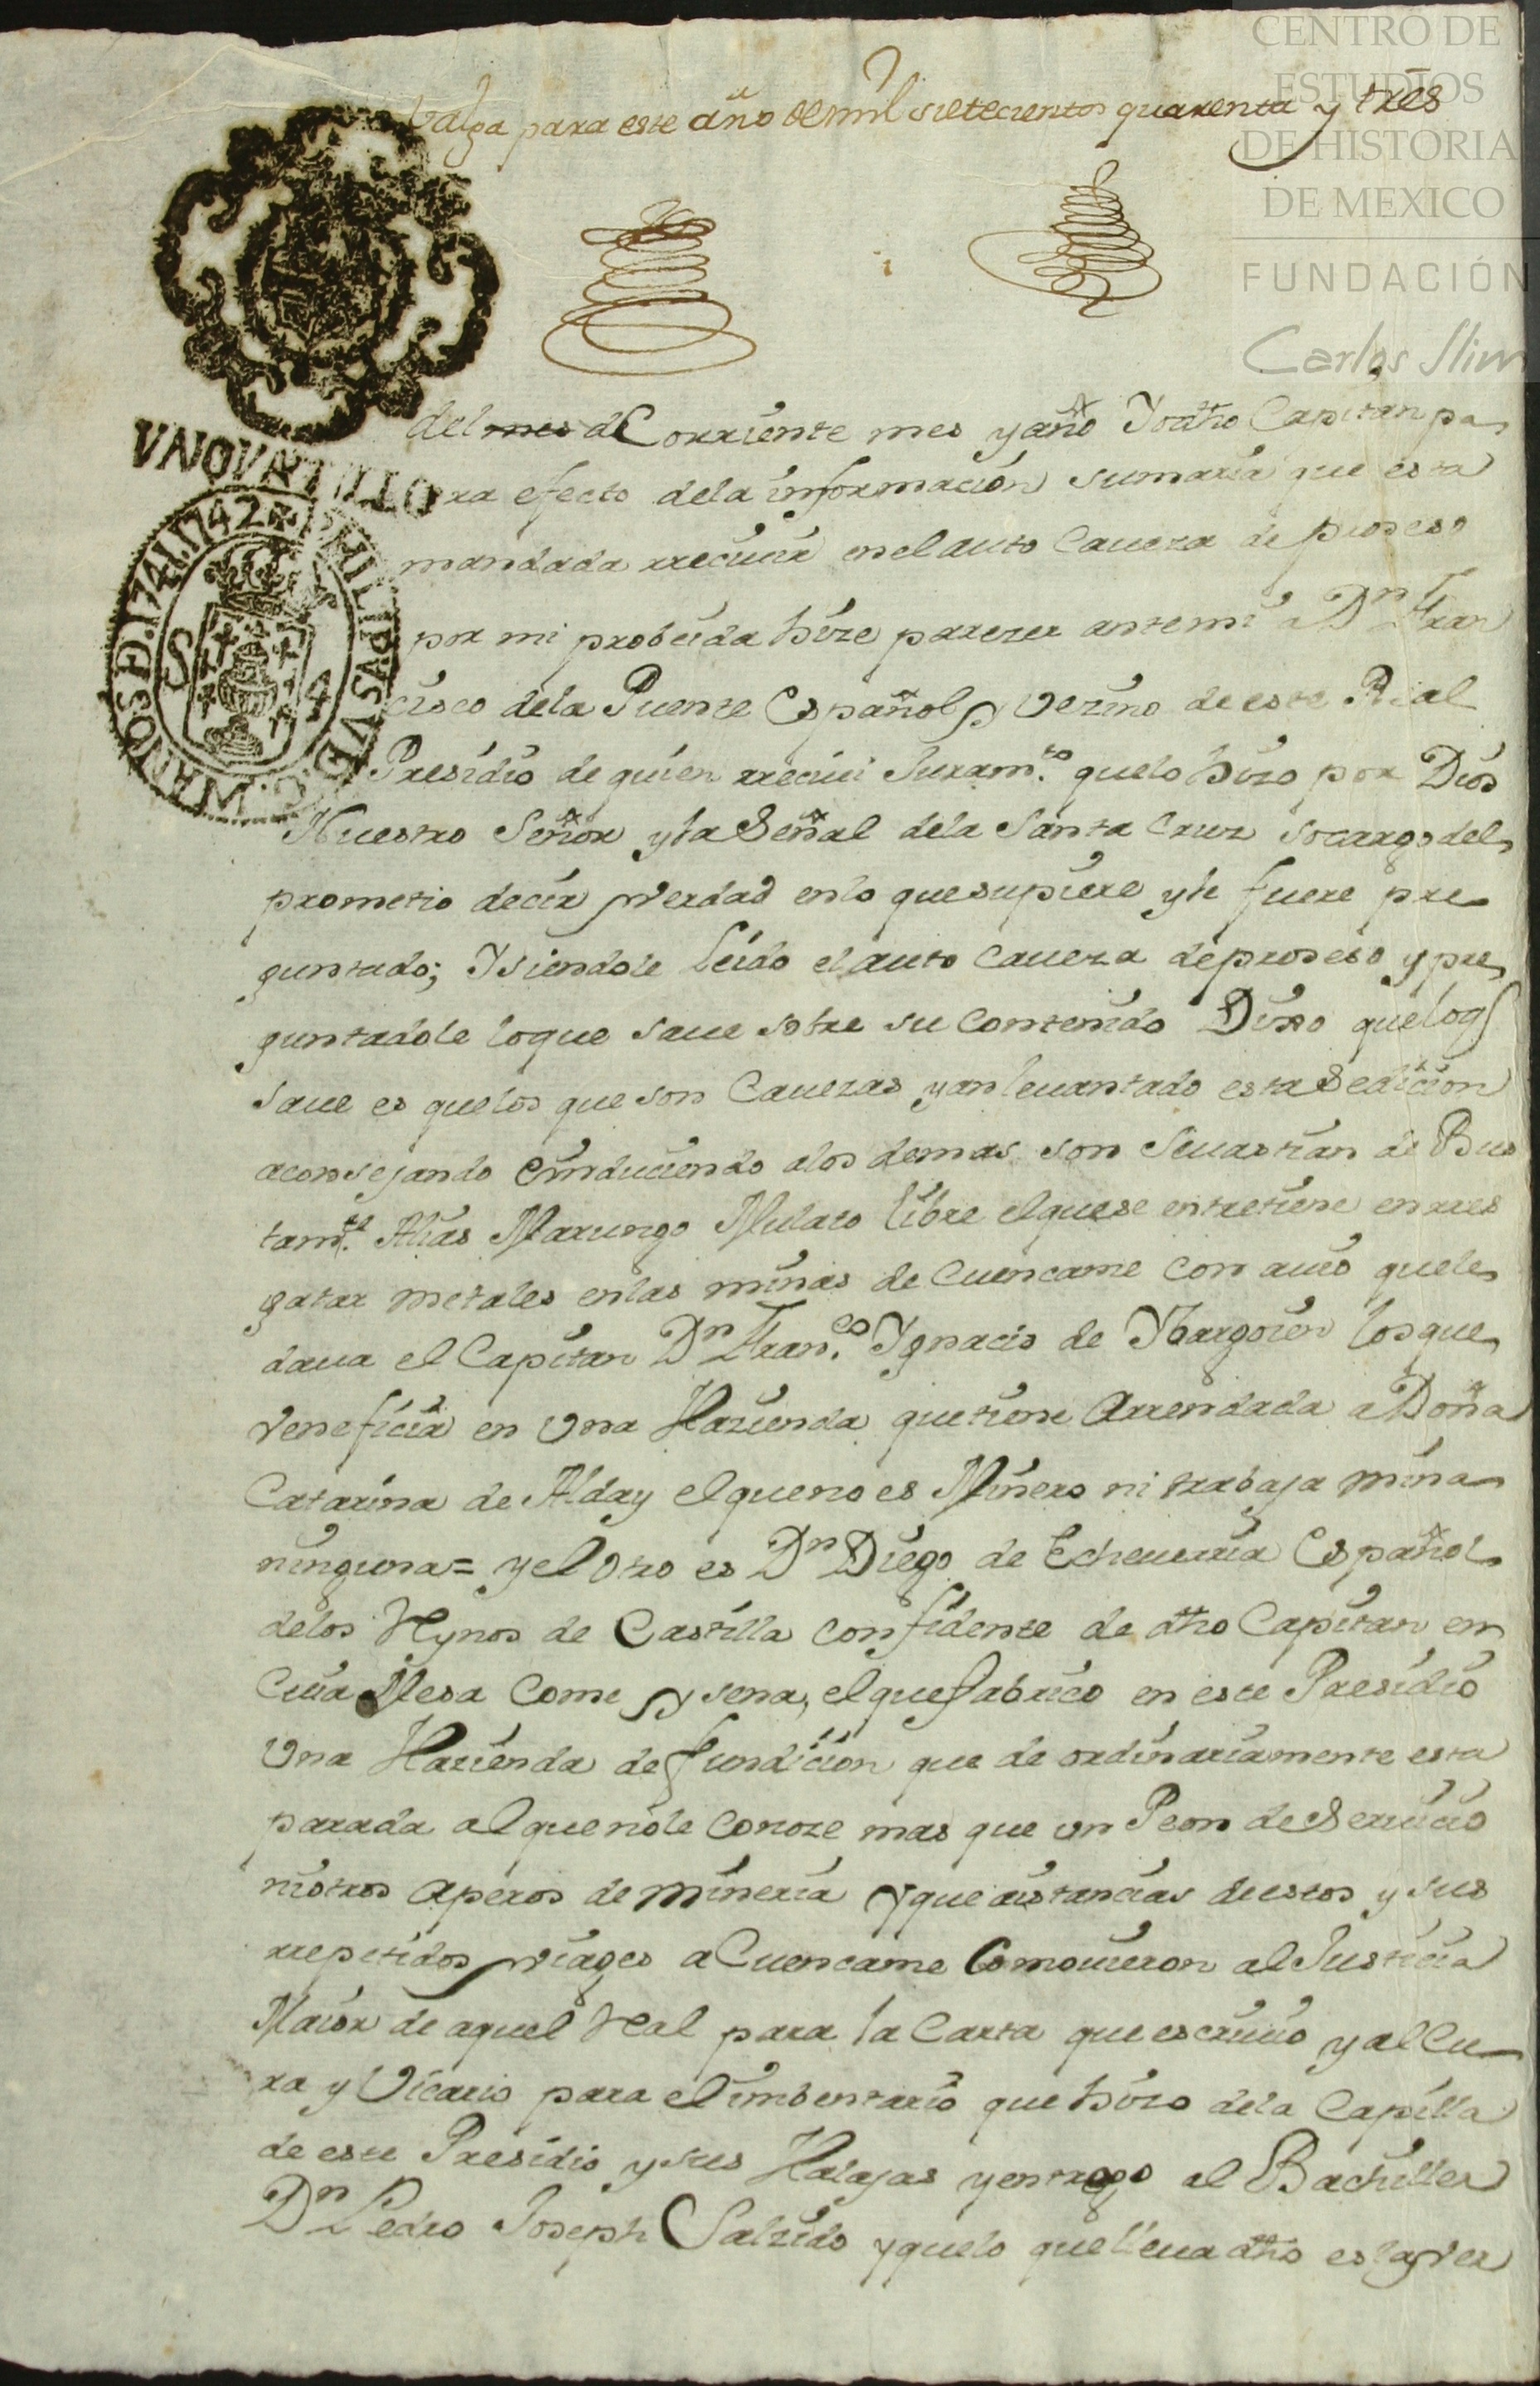 CENTRO DE
ESTUDIOS
DE HISTORIA
DE MEXICO
FUNDACIÓN
Carlos Slim
Valga para este año de mil setecientos quarenta y tres
VNQVARTILLO
del mes de Corriente mes y año Yo dho Capitan pa
ra efecto dela informacion sumaria que esta
mandada rrecivir en el auto Caveza de proseso
por mi probeida hize parezer antemi a Dn Fran
cisco dela Puente Español y Vezino de este Real
Presidio de quien rrecivi Juram.to quelo hizo por Dios
Nuestro Señor y la Señal dela Santa Cruz socargo del
prometio decir verdad en lo que supiere y le fuere pre
guntado; Y siendole leido el auto Caveza de proseso y pre
guntadole loque save sobre su Contenido Dixo que loq
save es quelos que son Cavezas y an levantado esta Sedicion
aconsejando e induciendo alos demas son Sevastian de Bus
tam.te Alias Marungo Mulato libre elque se entretiene en rres
gatar metales en las minas de Cuencame con avio que le
dava el Capitan Dn Fran.co Ygnacio de Ybargoien los que
veneficia en Una Hazienda que tiene Arrendada a Doña
Catarina de Alday el que no es Minero ni trabaja mina
ninguna= y el Otro es Dn Diego de Echeverria Español
delos Rynos de Castilla confidente de dho Capitan en
Cuia Mesa Come y sena, el que fabrico en este Presidio
Una Hazienda de fundicion que de ordinariamente esta
parada al que nole Conoze mas que un Peon de Servicio
ni otros Aperos de mineria y que a istancias de estos y sus
rrepetidos viages a Cuencame Comovieron al Justicia
Maior de aquel Real para la Carta que escrivio y al Cu
ra y Vicario para el imbentario que hizo dela Capilla
de este Presidio y sus Halajas y entrego al Bachiller
Dn Pedro Joseph Salzido y quelo que lleva dho es la ver